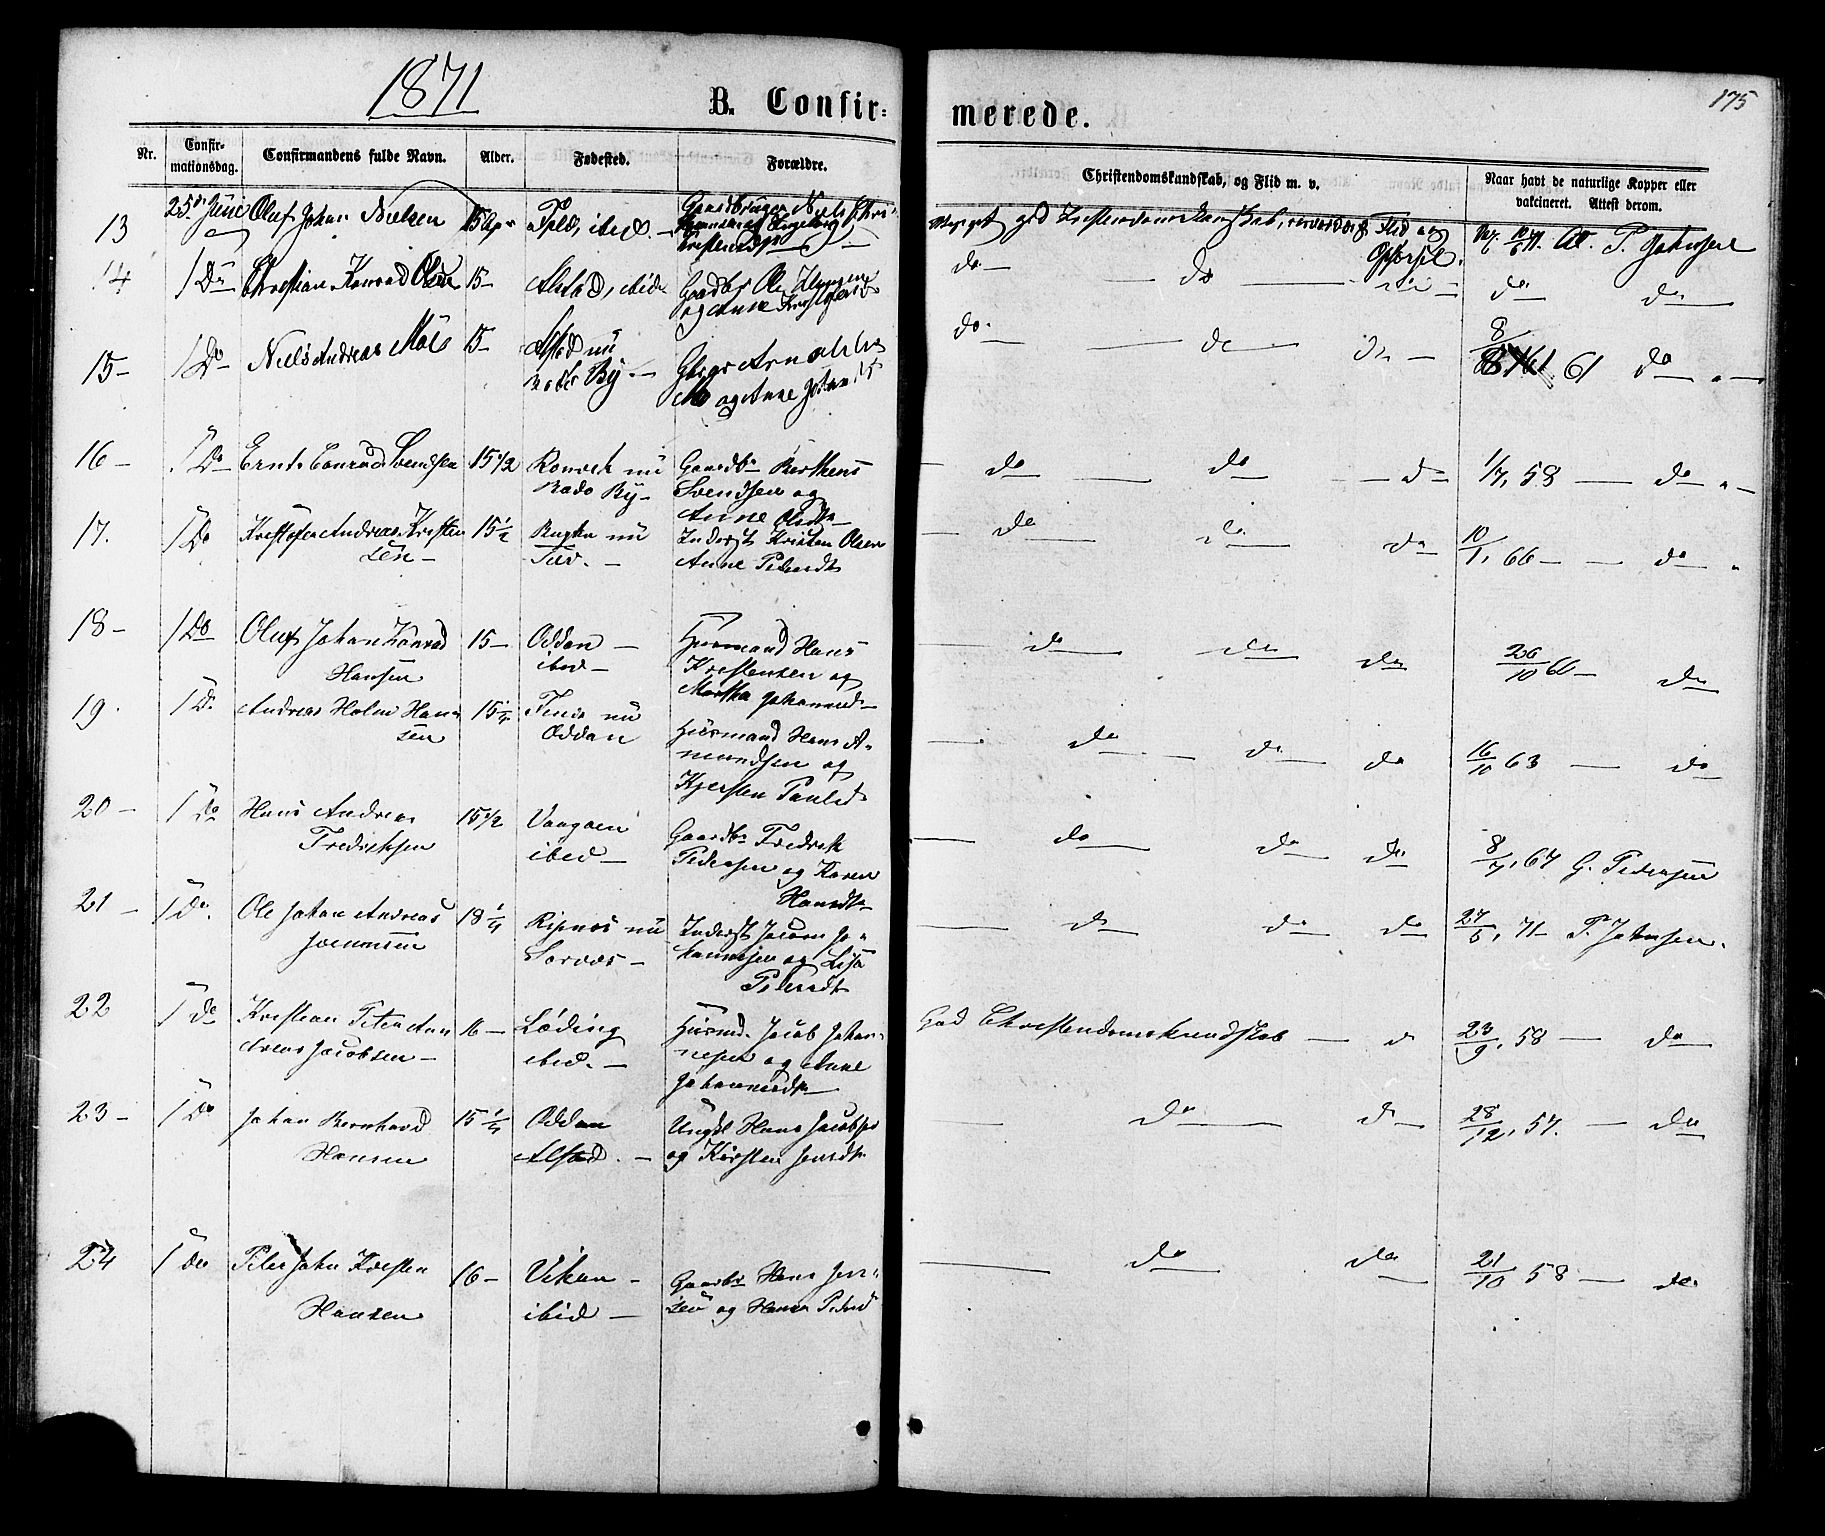 1871
B. Confirmerede.
175
Nr.
Confirmationsdag.
Confirmandens fulde Navn.
Alder.
Fødested.
Forældre.
Christendomskundskab, og Flid m. v.
Naar havt de naturlige Kopper eller vakcineret. Attest derom.
13 25de Juni Oluf Johan Nielsen 15 ibid. Gaardbruger Niels
Meget god Kristendomskundskab, Flid og Opførsel. P. Johnsen
14 Do Christian Konrad Olsen 15 Alstad, ibid. Gaardbr Ole
og Anne
do do do do
15 Do Niels Andreas Moe 15 Alstad nu
Bodø By
Mo og Anne
do do do 8 61 do
16 Do Ernt Conrad Svendsen 15 1/2 Ronvik nu
Bodø By
Gaardbr
Svendsen og
Anne Olsdtr
do do do 1/7, 58 do
17. Do Kristofer Andreas Kristensen 15 1/2 nu
Inderst Kristen Olsen
Anne Pedersdtr
do do do 10/1, 66 do
18 Do Oluf Johan Konrad
Hansen
15 Oddan
ibid
Huusmand Hans
Kristensen og
Martha Johannesd
do do do 26/10 do
19 Do Andreas Holm Hansen 15 nu
Oddan
Huusmand Hans Amundsen og
Kjersten Paulsd
do do do 16/10 63 do
20 Do Hans Andreas
Fredriksen
15 1/2 Vaagan
ibid
Gaardbr Fredrik
Pedersen og Karen
Hansdtr
do do do 8/7, 67 G. Pedersen
21 Do Ole Johan Andreas
18 1/4 Ripnes nu
Inderst Jacob Johannesen og Lisa
Petersdtr
do do do 27/5, 71 P. Johnsen
22 Do Kristian Peter Andreas Jacobsen
16 Løding
ibid.
Huusmd. Jacob Johannesen og Anne
Johannesdtr
God Christendomskundskab d 23/9, 58 do
23 Do Johan Bernhard
Hansen
15 1/4 Oddan
Alstad.
Ungk Hans Jacobsen
og Kirsten Jensdtr
do d 28/12, 57. do
24 Do Peter Johan Kristen
Hansen
16 Vikan
ibid
Gaardbr Hans Jensen og Hanna Pedersd
do do 21/10 58 do